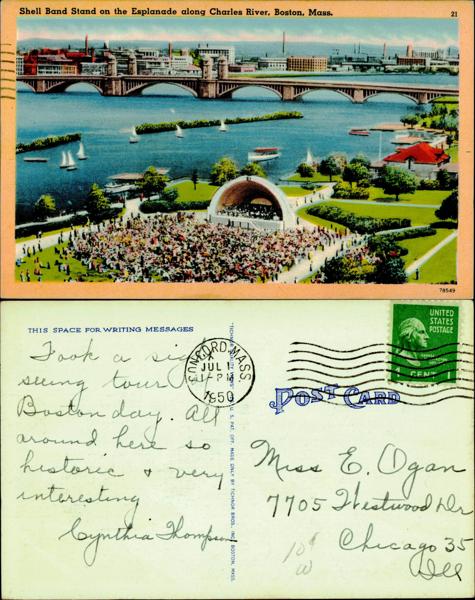 Shell Band Stand on the Esplanade along Charles River, Boston, Mass.
21
78549
THIS SPACE FOR WRITING MESSAGES
Took a sight
seeing tour
Boston day. All
around here so
historic & very
interesting
Cynthia Thompson
CONCORD, MASS.
JUL 1
1950
POST CARD
UNITED
STATES
POSTAGE
1 CENT 1
Miss E. Ogan
7705 Westwood Dr
Chicago 35
Ill
10¢
w